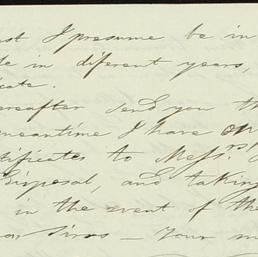 I presume be in
in different years,
cate.
ereafter send you th
meantime I have on
tificates to Messrs.
Disposal, and taking
in the event of the
Sirs — Your m